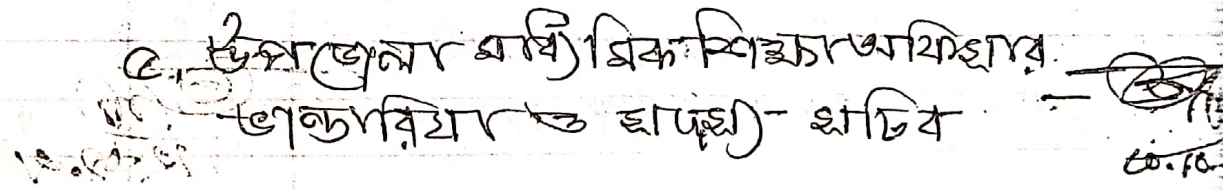 ৫. উপজেলা মাধ্যমিক শিক্ষা অফিসার
ভান্ডারিয়া ও সদস্য সচিব